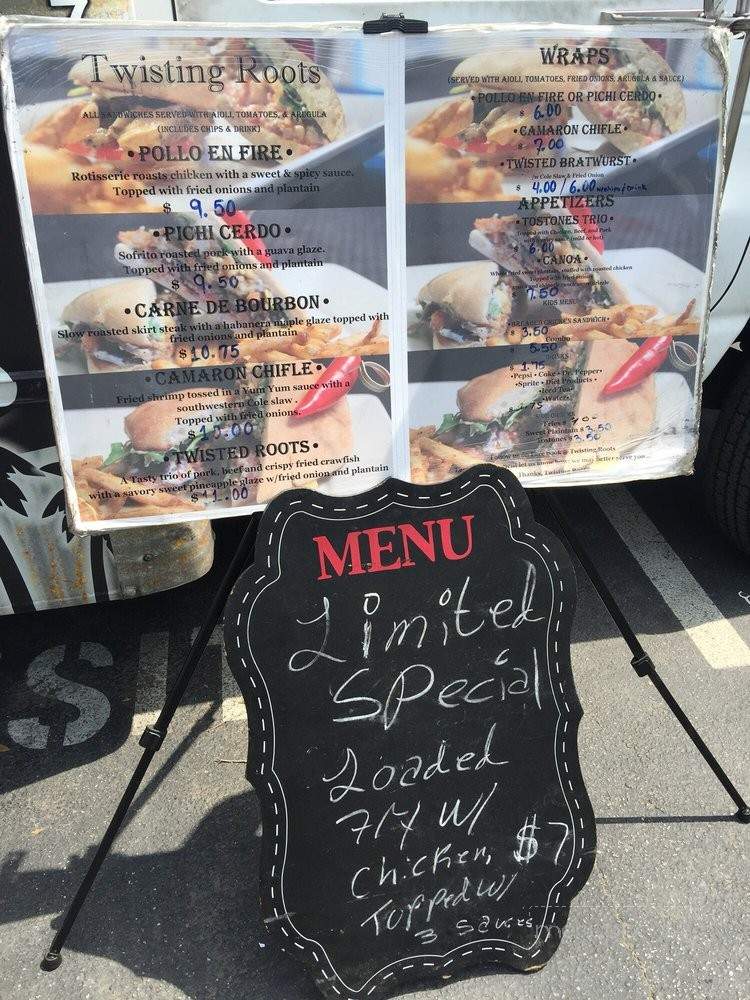 Twisting Roots
ALL SANDWICHES SERVED WITH AIOLI, TOMATOES, & ARUGULA
(INCLUDES CHIPS & DRINK)
• POLLO EN FIRE •
Rotisserie roasts chibken with a sweet & spicy sauce.
Topped with fried onions and plantain
$ 9.50
• PICHI CERDO •
Sofrito roasted pork with a guava glaze.
Topped with fried onions and plantain
$ 9.50
• CARNE DE BOURBON •
Slow roasted skirt steak with a habanera maple glaze topped with
fried onions and plantain
$ 10.75
• CAMARON CHIFLE •
Fried shrimp tossed in a Yum Yum sauce with a
southwestern Cole slaw.
Topped with fried onions.
$ 10.00
• TWISTED ROOTS •
A Tasty trio of pork, beef and crispy fried crawfish
with a savory sweet pineapple glaze w/fried onion and plantain
$ 11.00
WRAPS
(SERVED WITH AIOLI, TOMATOES, FRIED ONIONS, ARUGULA & SAUCE)
• POLLO EN FIRE OR PICHI CERDO •
$ 6.00
• CAMARON CHIFLE •
$ 7.00
• TWISTED BRATWURST •
/w Cole Slaw & Fried Onion
$ 4.00 / 6.00 w/chips/drink
APPETIZERS
• TOSTONES TRIO •
Topped with Chicken, Beef, and Pork
$ 6.00
• CANOA •
Whole fried sweet plantain, stuffed with roasted chicken
Topped with fried onions
$ 7.50
KIDS MENU
• BREADED CHICKEN SANDWICH •
$ 3.50
Combo
$ 5.50
$ 1.75
• Pepsi • Coke • Dr. Pepper •
• Sprite • Diet Products •
• Iced Tea •
• Water •
Fries $
Sweet Plantain $ 3.50
Tostones $ 3.50
Twisting Roots
may better serve you
Thanks, Twisting Roots
MENU
Limited
Special
Loaded
7/7 W/
Chicken, $7
Topped W/
3 Sauces